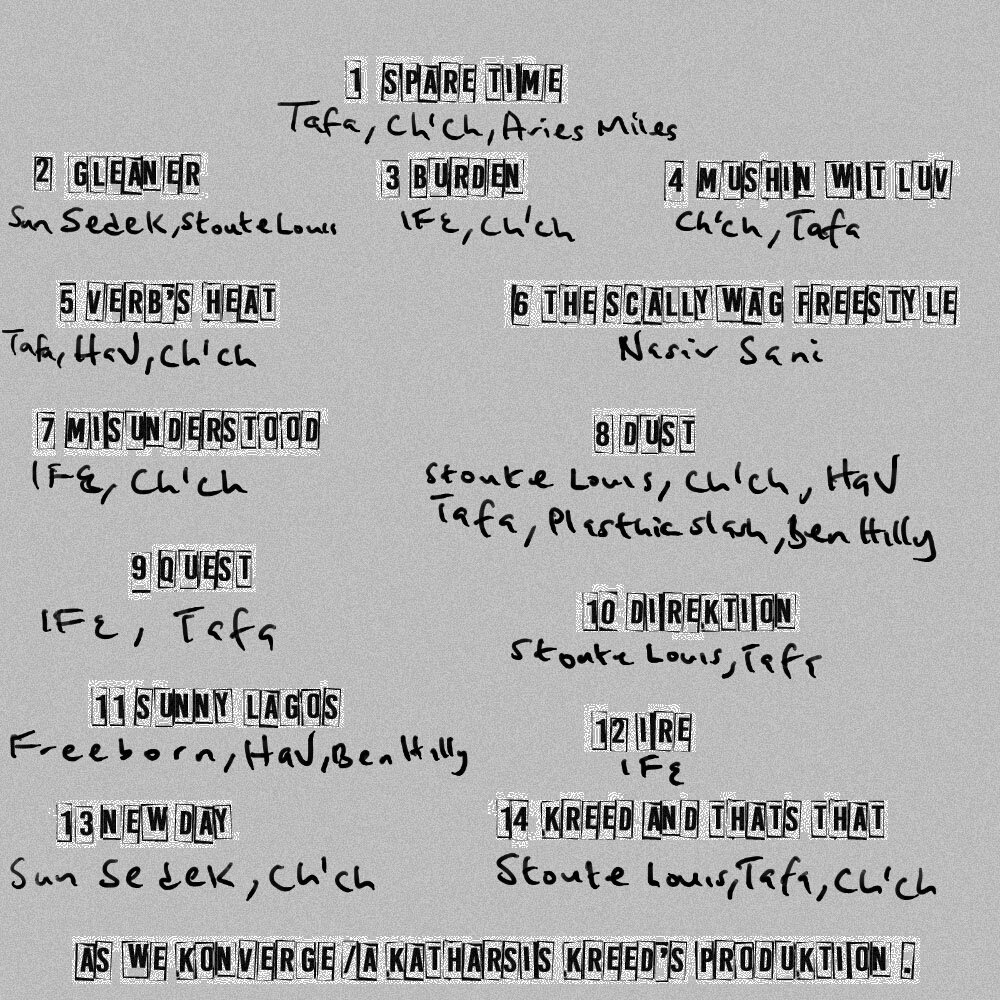 1 SPARE TIME
Tafa, Ch'ch, Aries Miles
2 GLEANER
Sun Sedek, Stoute Louis
3 BURDEN
IFE, Ch'ch
4 MUSHIN WIT LUV
Ch'ch, Tafa
5 VERB'S HEAT
Tafa, HaV, Ch'ch
6 THE SCALLY WAG FREESTYLE
Nasir Sani
7 MISUNDERSTOOD
IFE, Ch'ch
8 DUST
Stoute Louis, Ch'ch, HaV
Tafa, Plasthic slash, Ben Hilly
9 QUEST
IFE, Tafa
10 DIREKTION
Stoute Louis, Tafa
11 SUNNY LAGOS
Freeborn, HaV, Ben Hilly
12 IRE
IFE
13 NEW DAY
Sun Sedek, Ch'ch
14 KREED AND THATS THAT
Stoute Louis, Tafa, Ch'ch
AS WE KONVERGE/A KATHARSIS KREED'S PRODUKTION.